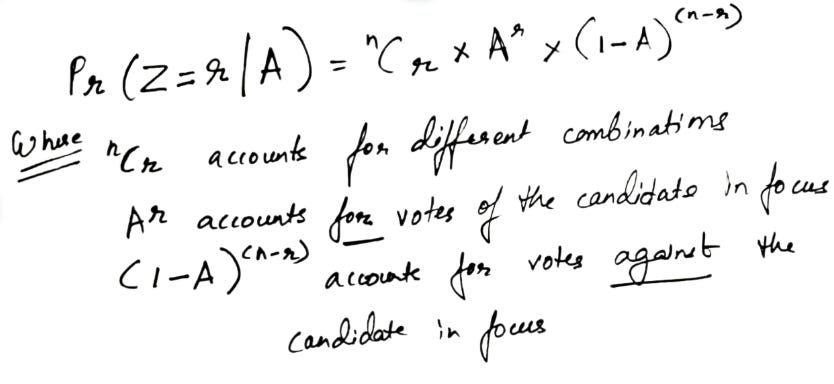 Pr (Z=r/A) = ⁿCr × Aʳ × (1-A)⁽ⁿ⁻ʳ⁾
Where ⁿCr accounts for different combinations
Aʳ accounts for votes of the candidate in focus
(1-A)⁽ⁿ⁻ʳ⁾ accounts for votes against the
candidate in focus